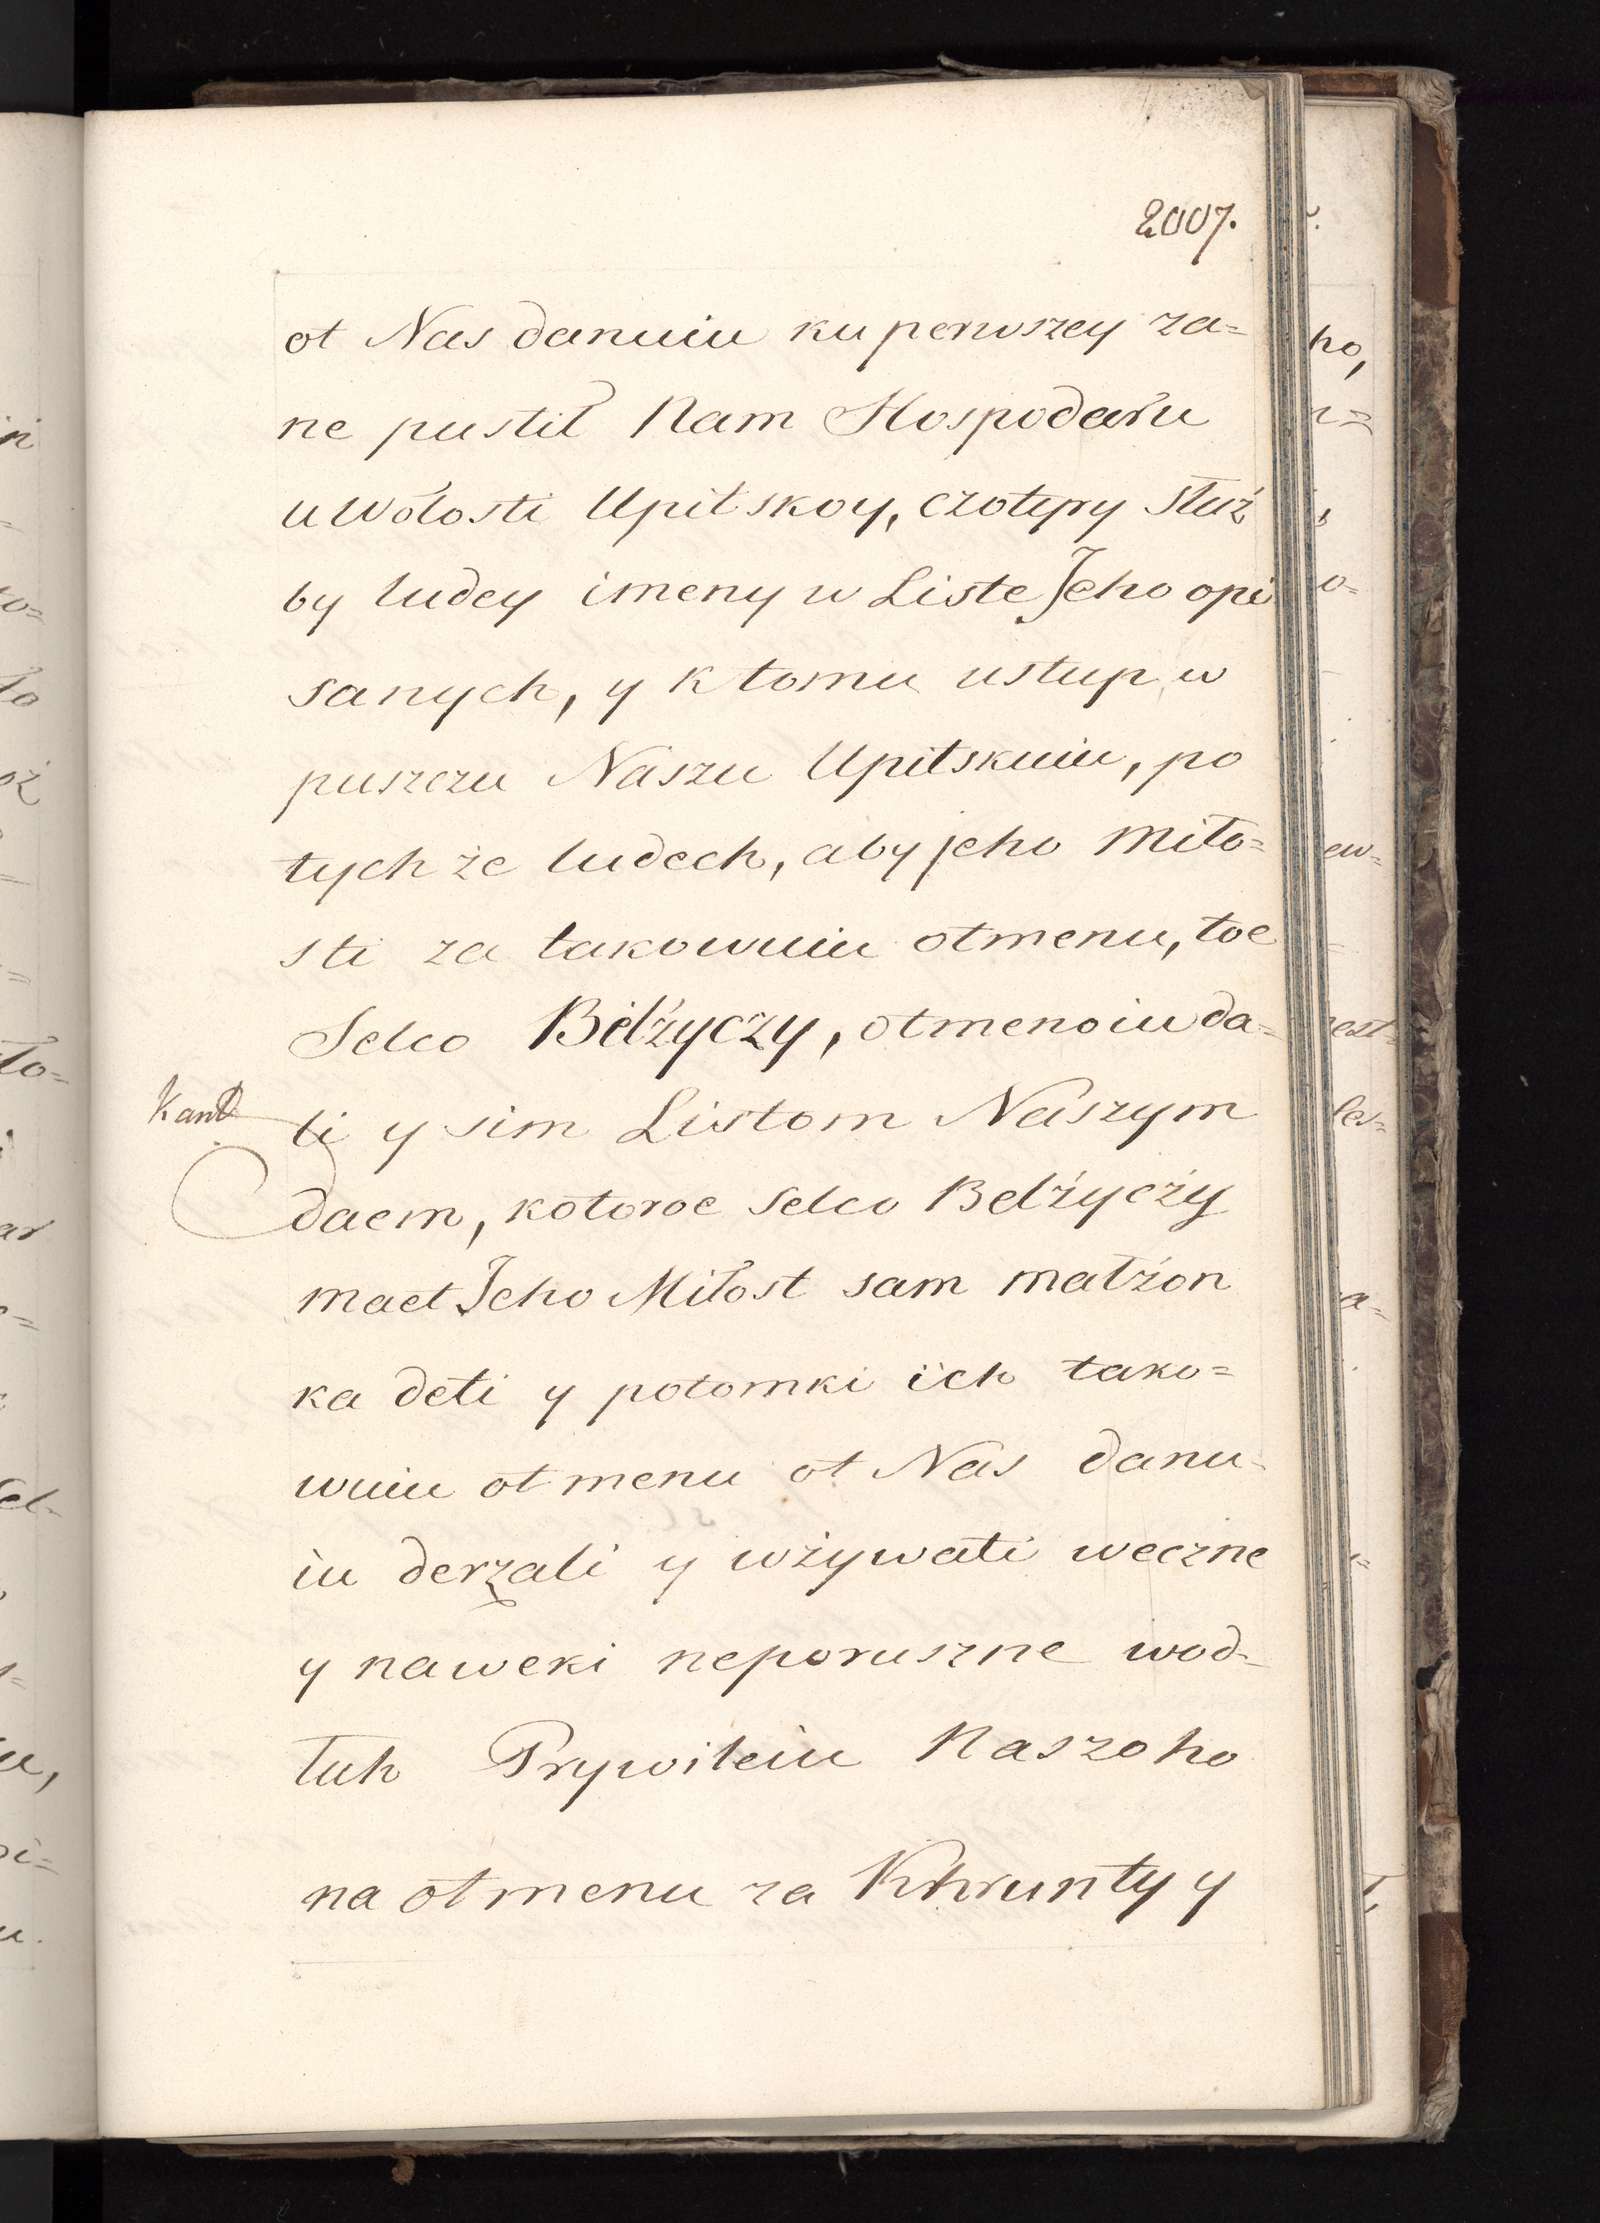 2007.
ot Nas danuiu ku perwszey za=
ne pustił Nam Hospodaru
u Wołosti Upitskoy, czotyry służ
by ludey imeny w Liste Jeho opi
sanych, y k tomu ustup w
puszczu Naszu Upitskuiu, po
tych że ludech, aby jeho Miło=
sti za takowuiu otmenu, toe
Selco Belżyczy, otmenoiu da=
ti y sim Listom Naszym
daem, kotoroe selco Belżyczy
maet Jeho Miłost sam małżon
ka deti y potomki ich tako=
wuiu otmenu ot Nas danu=
iu derżali y wżywati weczne
y naweki neporuszne wod=
łuh Prywileiu Naszoho
na otmenu za Khrunty y